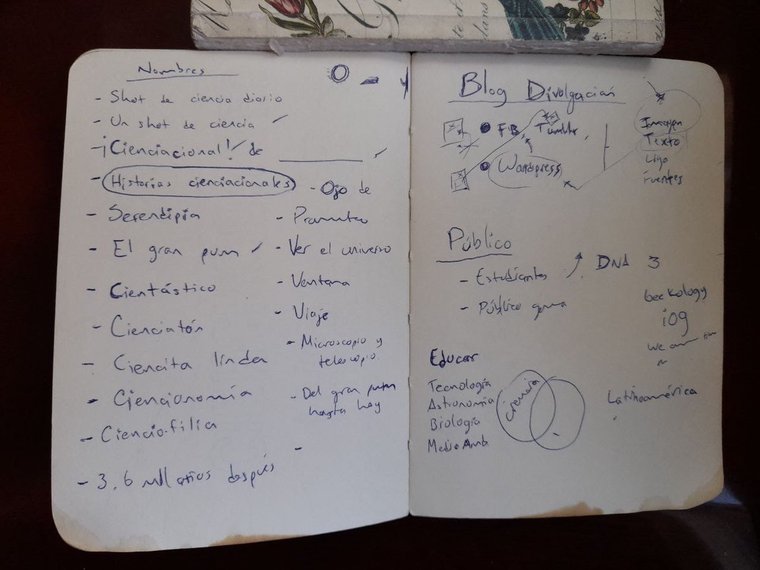 Nombres
- Shot de ciencia diario
- Un shot de ciencia ✓
- ¡Cienciacional! de ________ ✓
- Historias cienciacionales
- Serendipia
- El gran pum ✓
- Cientástico
- Cienciatón
- Ciencita linda
- Ciencionomía
- Ciencio-filia
- 3.6 mil años después
- Ojo de
- Prometeo
- Ver el universo
- Ventana
- Viaje
- Microscopio y
telescopio
- Del gran pum
hasta hoy
-
Blog Divulgación
FB, Tumblr
Wordpress
Imagen
Texto
Liga
Fuentes
Público
- Estudiantes
- Público
DNA 3
geekology
iog
we are
Latinoamérica
Educar
Tecnología
Astronomía
Biología
Medio Amb.
ciencia